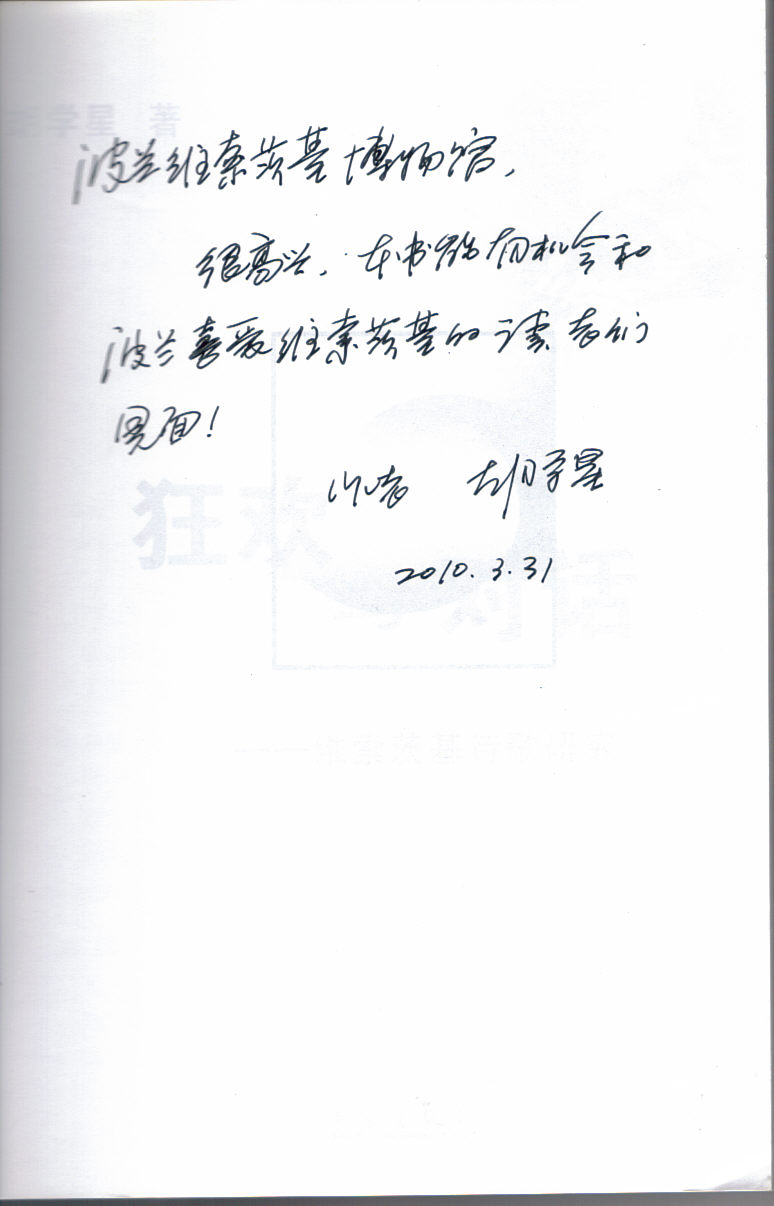 波兰维索茨基博物馆，
很高兴，本书能有机会和
波兰喜爱维索茨基的读者们
见面！
作者 胡学星
2010.3.31
学星 著
狂欢
对话
——维索茨基诗歌研究